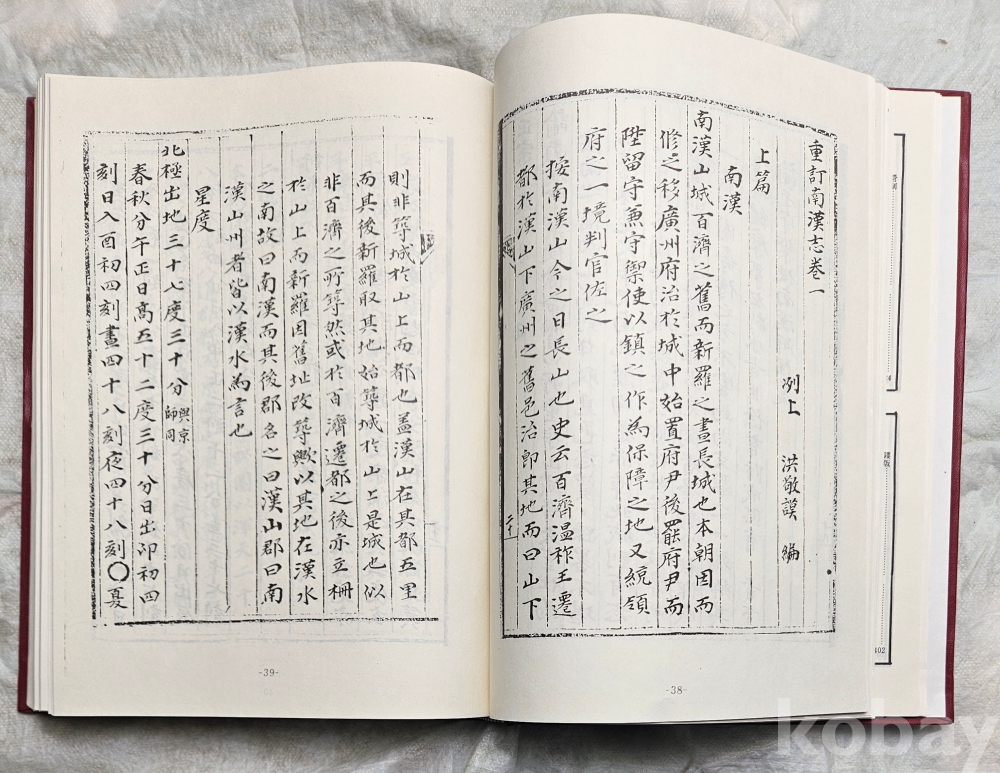 重訂南漢志卷一
洌上 洪敬謨 編
上篇
南漢
南漢山城百濟之舊而新羅之晝長城也本朝因而
修之移廣州府治於城中始置府尹後罷府尹而
陞留守兼守禦使以鎮之作為保障之地又統領
府之一境判官佐之
按南漢山今之日長山也史云百濟温祚王遷
都於漢山下廣州之舊邑治即其地而曰山下
-38-
則非築城於山上而都也盖漢山在其都五里
而其後新羅取其地始築城於山上是城也似
非百濟之所築然或於百濟遷都之後亦立柵
於山上而新羅因舊址改築歟以其地在漢水
之南故曰南漢而其後郡名之曰漢山郡曰南
漢山州者皆以漢水為言也
星度
北極出地三十七度三十分 與京師同
春秋分午正日高五十二度三十分日出卯初四
刻日入酉初四刻晝四十八刻夜四十八刻〇夏
-39-
402
kobay